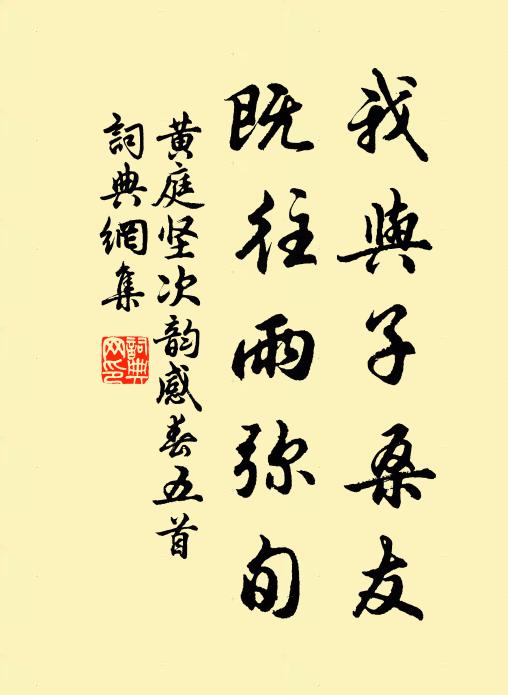 我與子桑友
既往雨弥旬
黄庭坚次韵感春五首
詞典網集
詞典网印